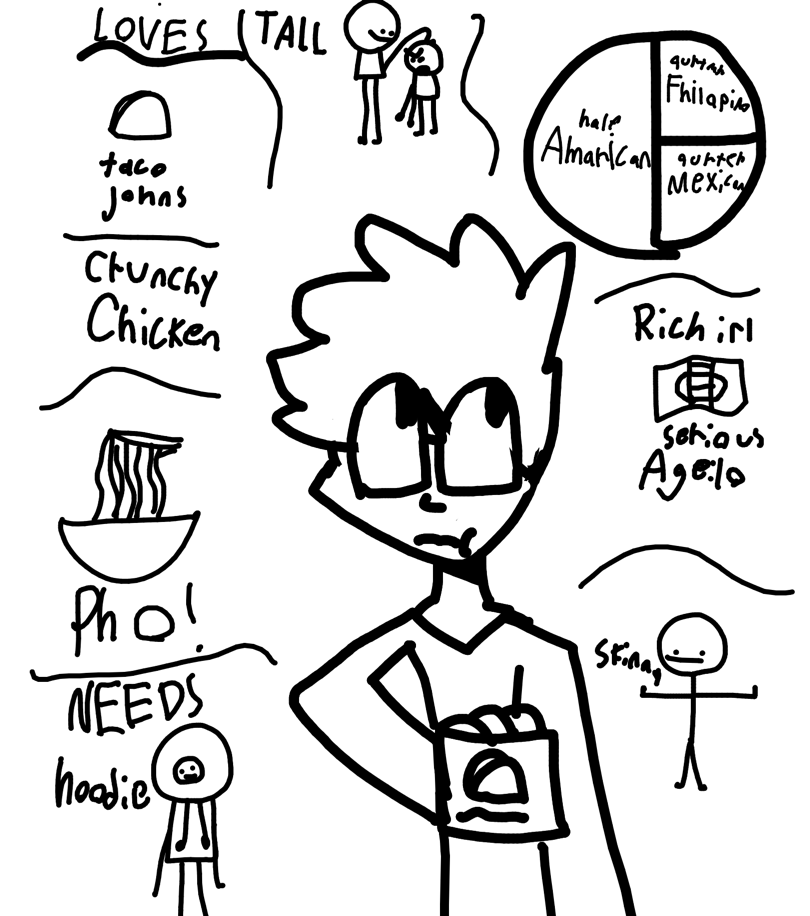 LOVES
TALL
taco
johns
Crunchy
Chicken
Pho!
NEEDS
hoodie
half
Amarican
qurter
Fhilapino
qurter
Mexican
Rich irl
serious
Ageilo
skinny